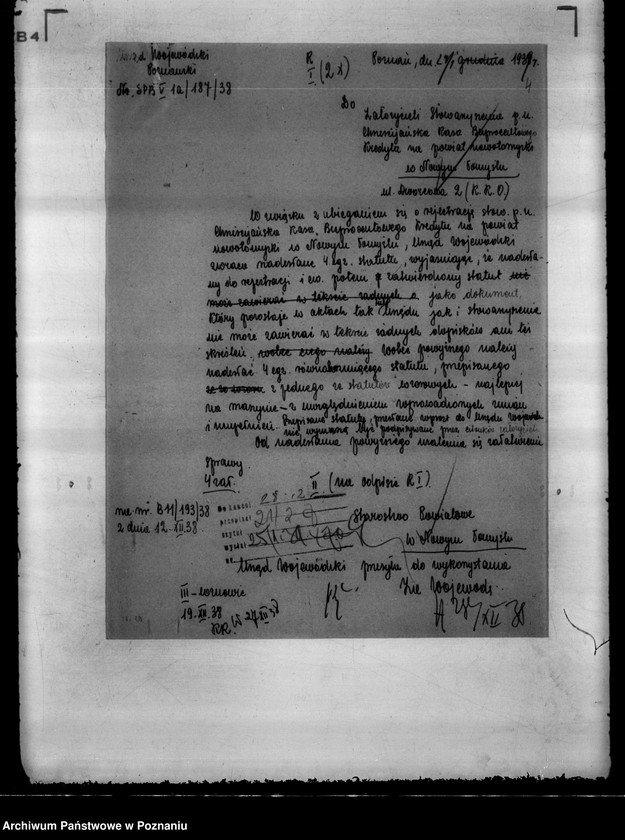 B4
Urząd Wojewódzki
Poznański
Nr. SPB V 1a/187/38
R
I (2x)
Poznań, dn. grudnia 1938r.
4
Do
Założycieli Stowarzyszenia p.n.
Chrześcijańska Kasa Bezprocentowego
Kredytu na powiat nowotomyski
w Nowym Tomyślu
ul. Dworcowa 2 (K.K.O)
W związku z ubieganiem się o rejestrację stow. p.n.
Chrześcijańska Kasa Bezprocentowego Kredytu na powiat
nowotomyski w Nowym Tomyślu, Urząd Wojewódzki
zwraca nadesłane 4 egz. statutu, wyjaśniając, że nadesła-
ny do rejestracji i ew. potem zatwierdzony statut nie
może zawierać w tekście żadnych jako dokument,
który pozostaje w aktach tak Urzędu jak i stowarzyszenia
nie może zawierać w tekście żadnych dopisków ani też
skreśleń, wobec czego należy Wobec powyższego należy
nadesłać 4 egz. równobrzmiącego statutu, przepisanego
z jednego ze statutów wzorowych - najlepiej
na maszynie - z uwzględnieniem wprowadzonych zmian
i uzupełnień. Przepisane statuty, przesłane wprost do Urzędu Wojew.
być podpisywane przez założycieli
Od nadesłania powyższego zależne się załatwienie
sprawy.
4 zał.
II (na odpisie R I)
na nr. B11/193/38
z dnia 12.XII.38
Starostwo Powiatowe
w Nowym Tomyślu
Urząd Wojewódzki przesyła do wykorzystania
III - wznowić
19.XII.38
Za Wojewodę
27/XII 38
Archiwum Państwowe w Poznaniu